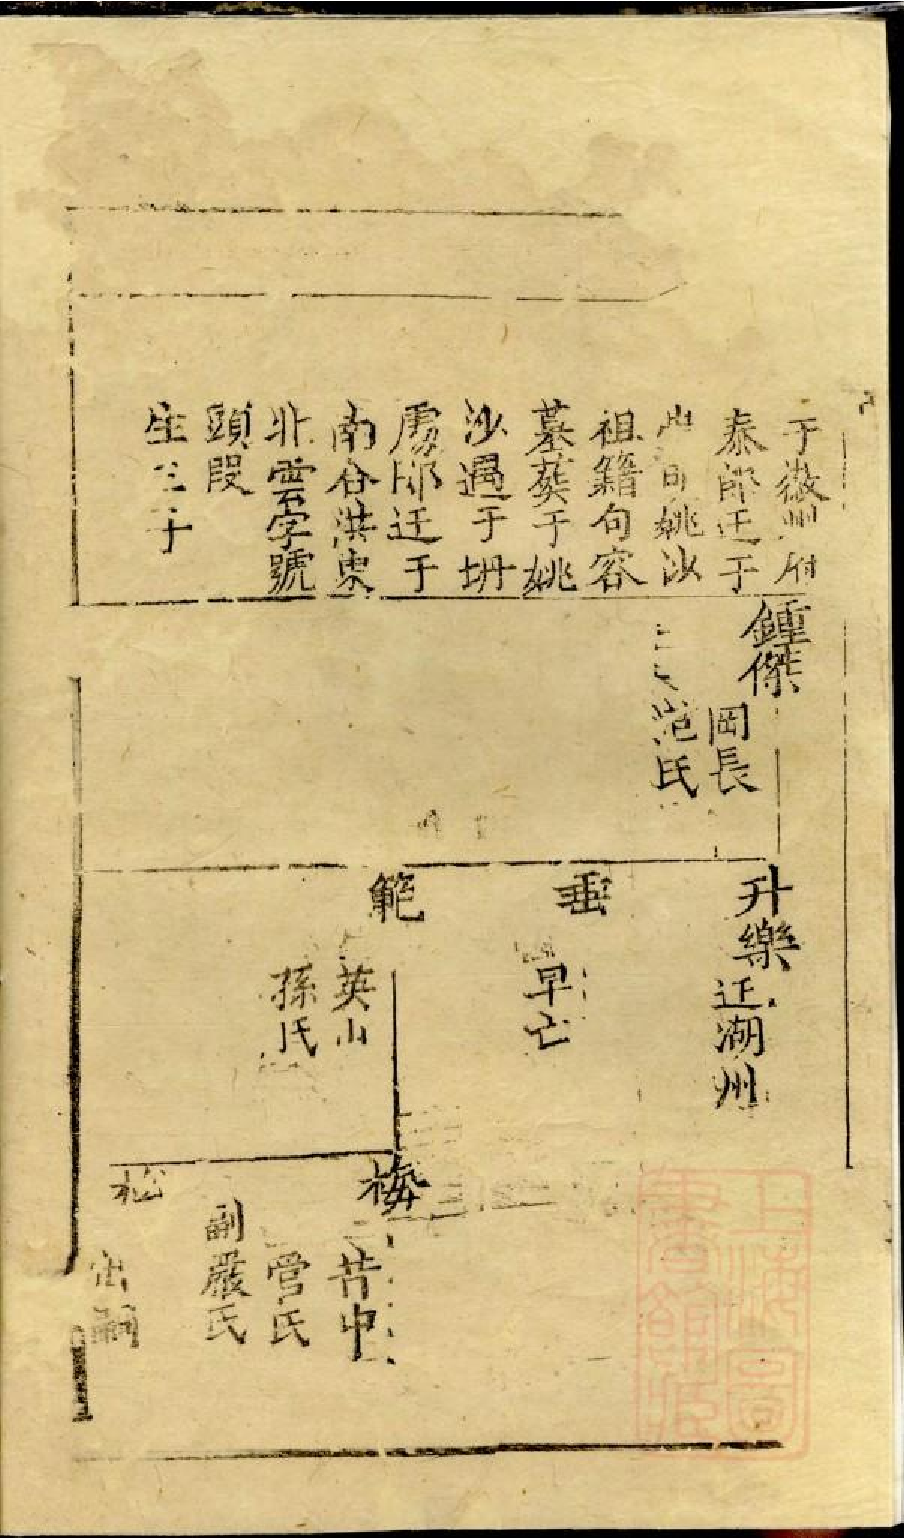 于徽州府
泰郎迁于
句姚沙
祖籍句容
墓葬于姚
沙過于坍
迁于
南谷洪東
北雲字號
頭段
生三子
鍾傑
岡長
范氏
升樂
迁湖州
垂
早亡
範
英山
孫氏
梅
昔中
管氏
副嚴氏
松
出嗣
上海圖
書館藏